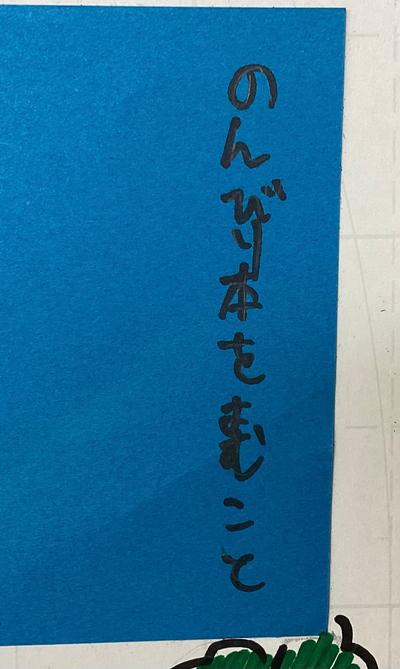 のんびり本をよむこと